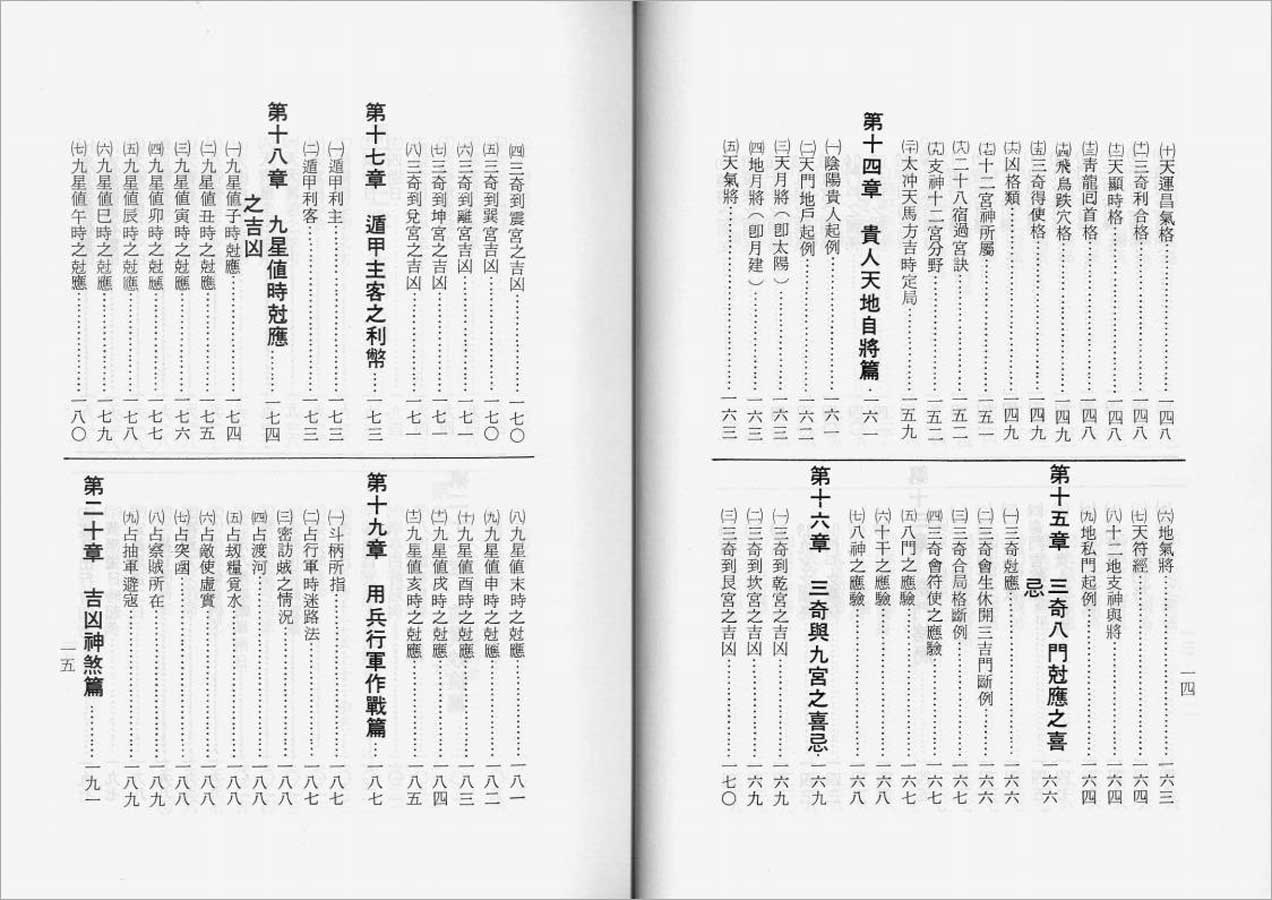 ㈩天運昌氣格……………一四八
㈩㈠三奇利合格……………一四八
㈩㈡天顯時格……………一四八
㈩㈢青龍囘首格……………一四八
㈩㈣飛鳥跌穴格……………一四九
㈩㈤三奇得使格……………一四九
㈩㈥凶格類……………一四九
㈩㈦十二宮神所屬……………一五一
㈩㈧二十八宿過宮訣……………一五二
㈩㈨支神十二宮分野……………一五二
㈡㈩太冲天馬方吉時定局……………一五九
第十四章　貴人天地自將篇…一六一
㈠陰陽貴人起例……………一六一
㈡天門地戶起例……………一六二
㈢天月將（卽太陽）……………一六三
㈣地月將（卽月建）……………一六三
㈤天氣將……………一六三
㈥地氣將……………一六三
㈦天符經……………一六四
㈧十二地支神與將……………一六四
㈨地私門起例……………一六四
第十五章　三奇八門尅應之喜
忌……………一六六
㈠三奇尅應……………一六六
㈡三奇會生休開三吉門斷例……………一六六
㈢三奇合局格斷例……………一六七
㈣三奇會符使之應驗……………一六七
㈤八門之應驗……………一六七
㈥十干之應驗……………一六八
㈦八神之應驗……………一六八
第十六章　三奇與九宮之喜忌…一六九
㈠三奇到乾宮之吉凶……………一六九
㈡三奇到坎宮之吉凶……………一六九
㈢三奇到艮宮之吉凶……………一七〇
一四
㈣三奇到震宮之吉凶……………一七〇
㈤三奇到巽宮吉凶……………一七〇
㈥三奇到離宮吉凶……………一七一
㈦三奇到坤宮之吉凶……………一七一
㈧三奇到兌宮之吉凶……………一七一
第十七章　遁甲主客之利幣…一七三
㈠遁甲利主……………一七三
㈡遁甲利客……………一七三
第十八章　九星値時尅應
之吉凶……………一七四
㈠九星値子時尅應……………一七四
㈡九星値丑時之尅應……………一七五
㈢九星値寅時之尅應……………一七六
㈣九星値卯時之尅應……………一七七
㈤九星値辰時之尅應……………一七八
㈥九星値巳時之尅應……………一七九
㈦九星値午時之尅應……………一八〇
㈧九星値未時之尅應……………一八一
㈨九星値申時之尅應……………一八二
㈩九星値酉時之尅應……………一八三
㈩㈠九星値戌時之尅應……………一八四
㈩㈡九星値亥時之尅應……………一八五
第十九章　用兵行軍作戰篇…一八七
㈠斗柄所指……………一八七
㈡占行軍時迷路法……………一八七
㈢密訪賊之情況……………一八八
㈣占渡河……………一八八
㈤占刼糧覓水……………一八八
㈥占敵使虛實……………一八八
㈦占突圍……………一八八
㈧占察賊所在……………一八九
㈨占抽軍避寇……………一八九
第二十章　吉凶神煞篇……………一九一
一五